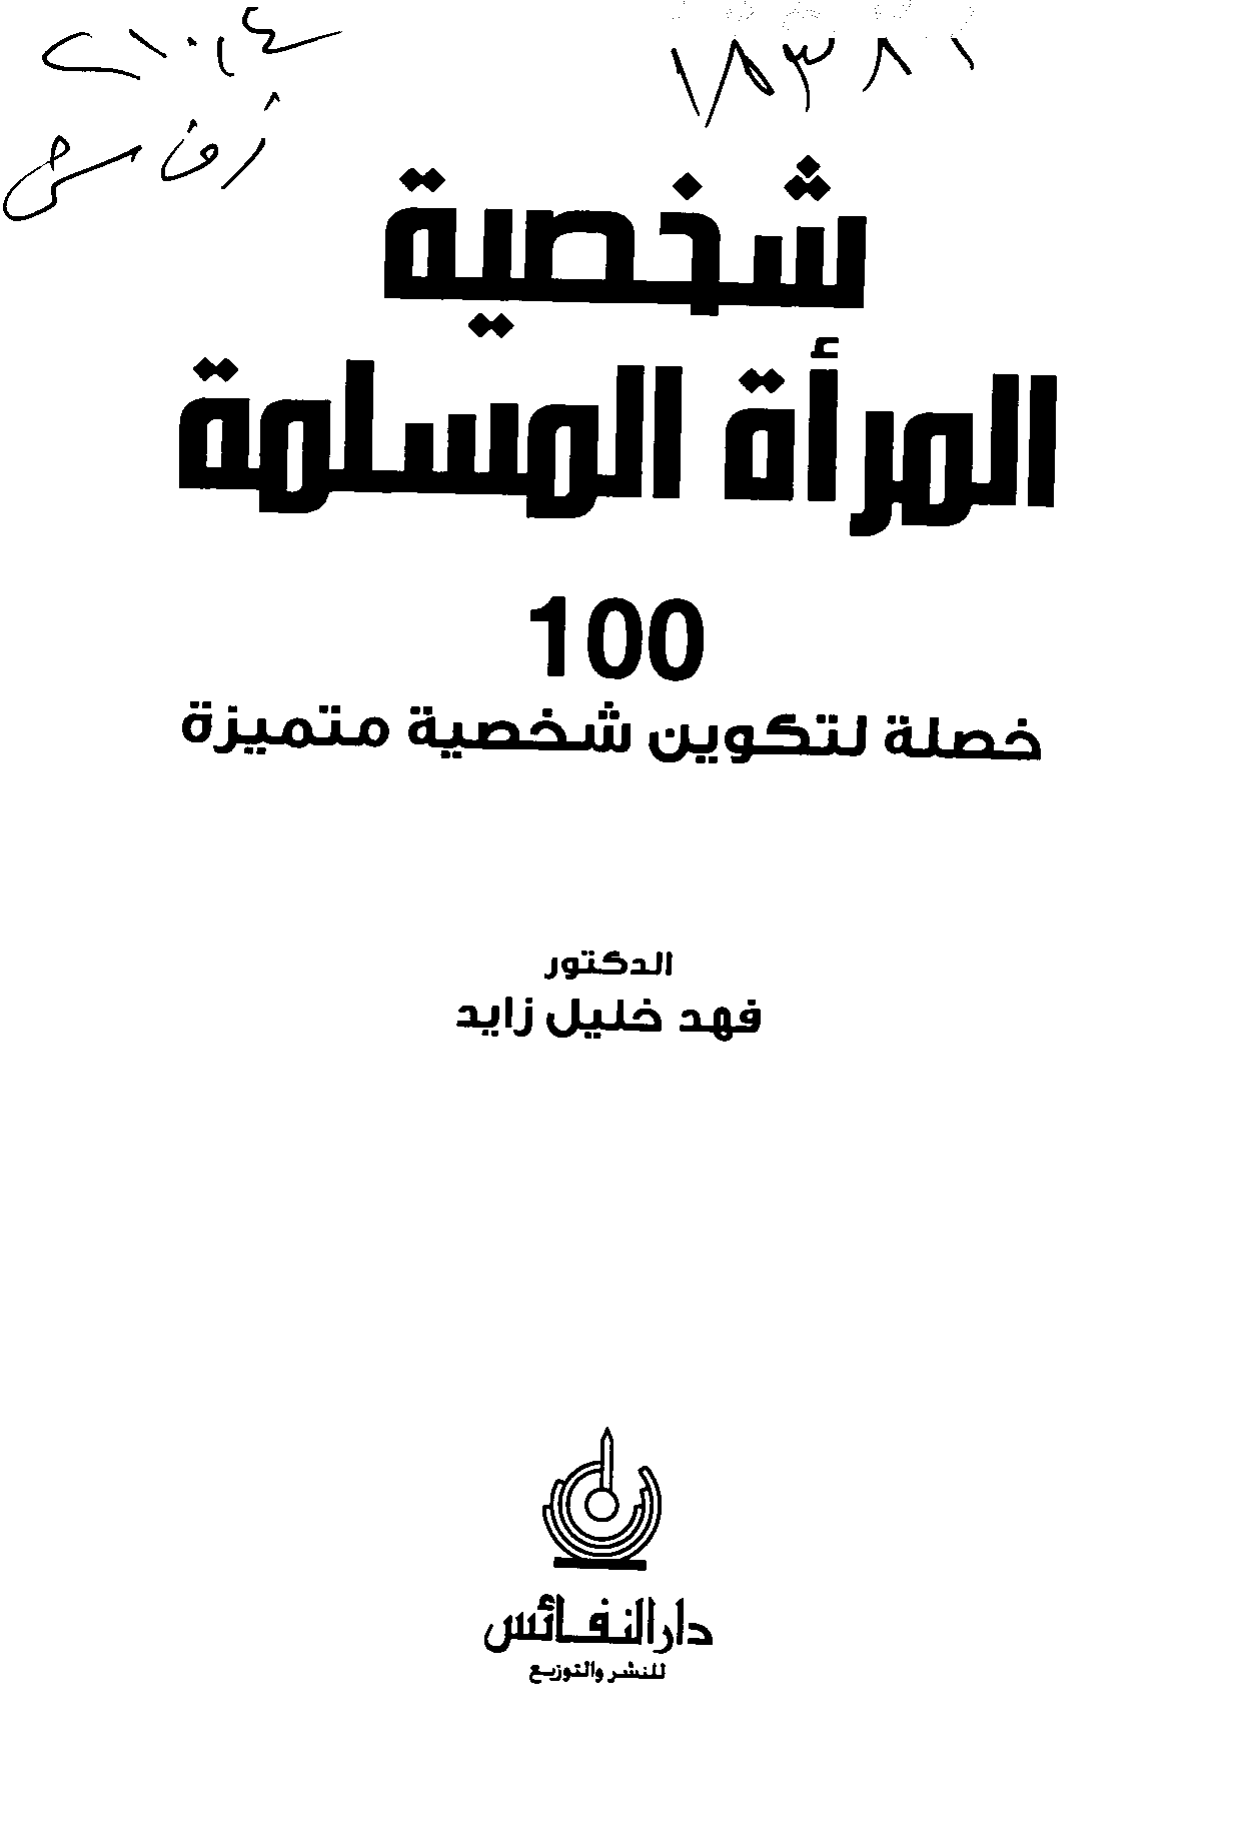 شخصية
المرأة المسلمة
100
خصلة لتكوين شخصية متميزة
الدكتور
فهد خليل زايد
دار النفائس
للنشر والتوزيع